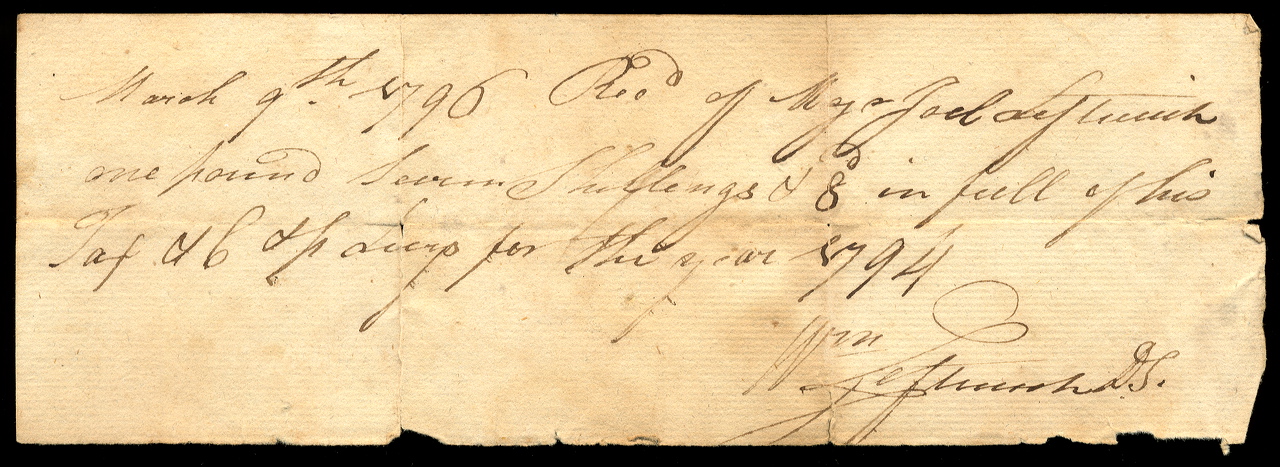 March 9th 1796 Recd of Majr Joel Leftwich
one pound Seven Shillings & 8d in full of his
Tax & C & p Levys for the year 1794
Wm
Leftwich D.S.